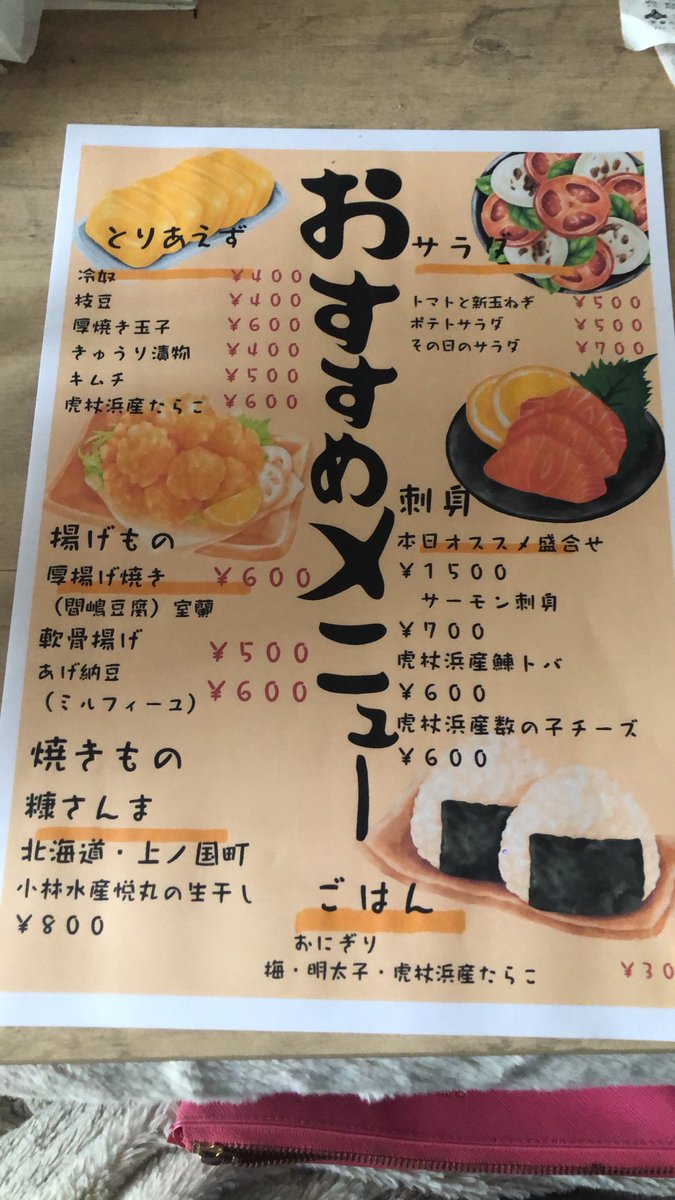 おすすめメニュー
とりあえず
冷奴 ¥400
枝豆 ¥400
厚焼き玉子 ¥600
きゅうり漬物 ¥400
キムチ ¥500
虎杖浜産たらこ ¥600
揚げもの
厚揚げ焼き ¥600
（間嶋豆腐）室蘭
軟骨揚げ ¥500
あげ納豆 ¥600
（ミルフィーユ）
焼きもの
糠さんま
北海道・上ノ国町
小林水産悦丸の生干し
¥800
サラダ
トマトと新玉ねぎ ¥500
ポテトサラダ ¥500
その日のサラダ ¥700
刺身
本日オススメ盛合せ
¥1500
サーモン刺身
¥700
虎杖浜産鰊トバ
¥600
虎杖浜産数の子チーズ
¥600
ごはん
おにぎり
梅・明太子・虎杖浜産たらこ ¥30